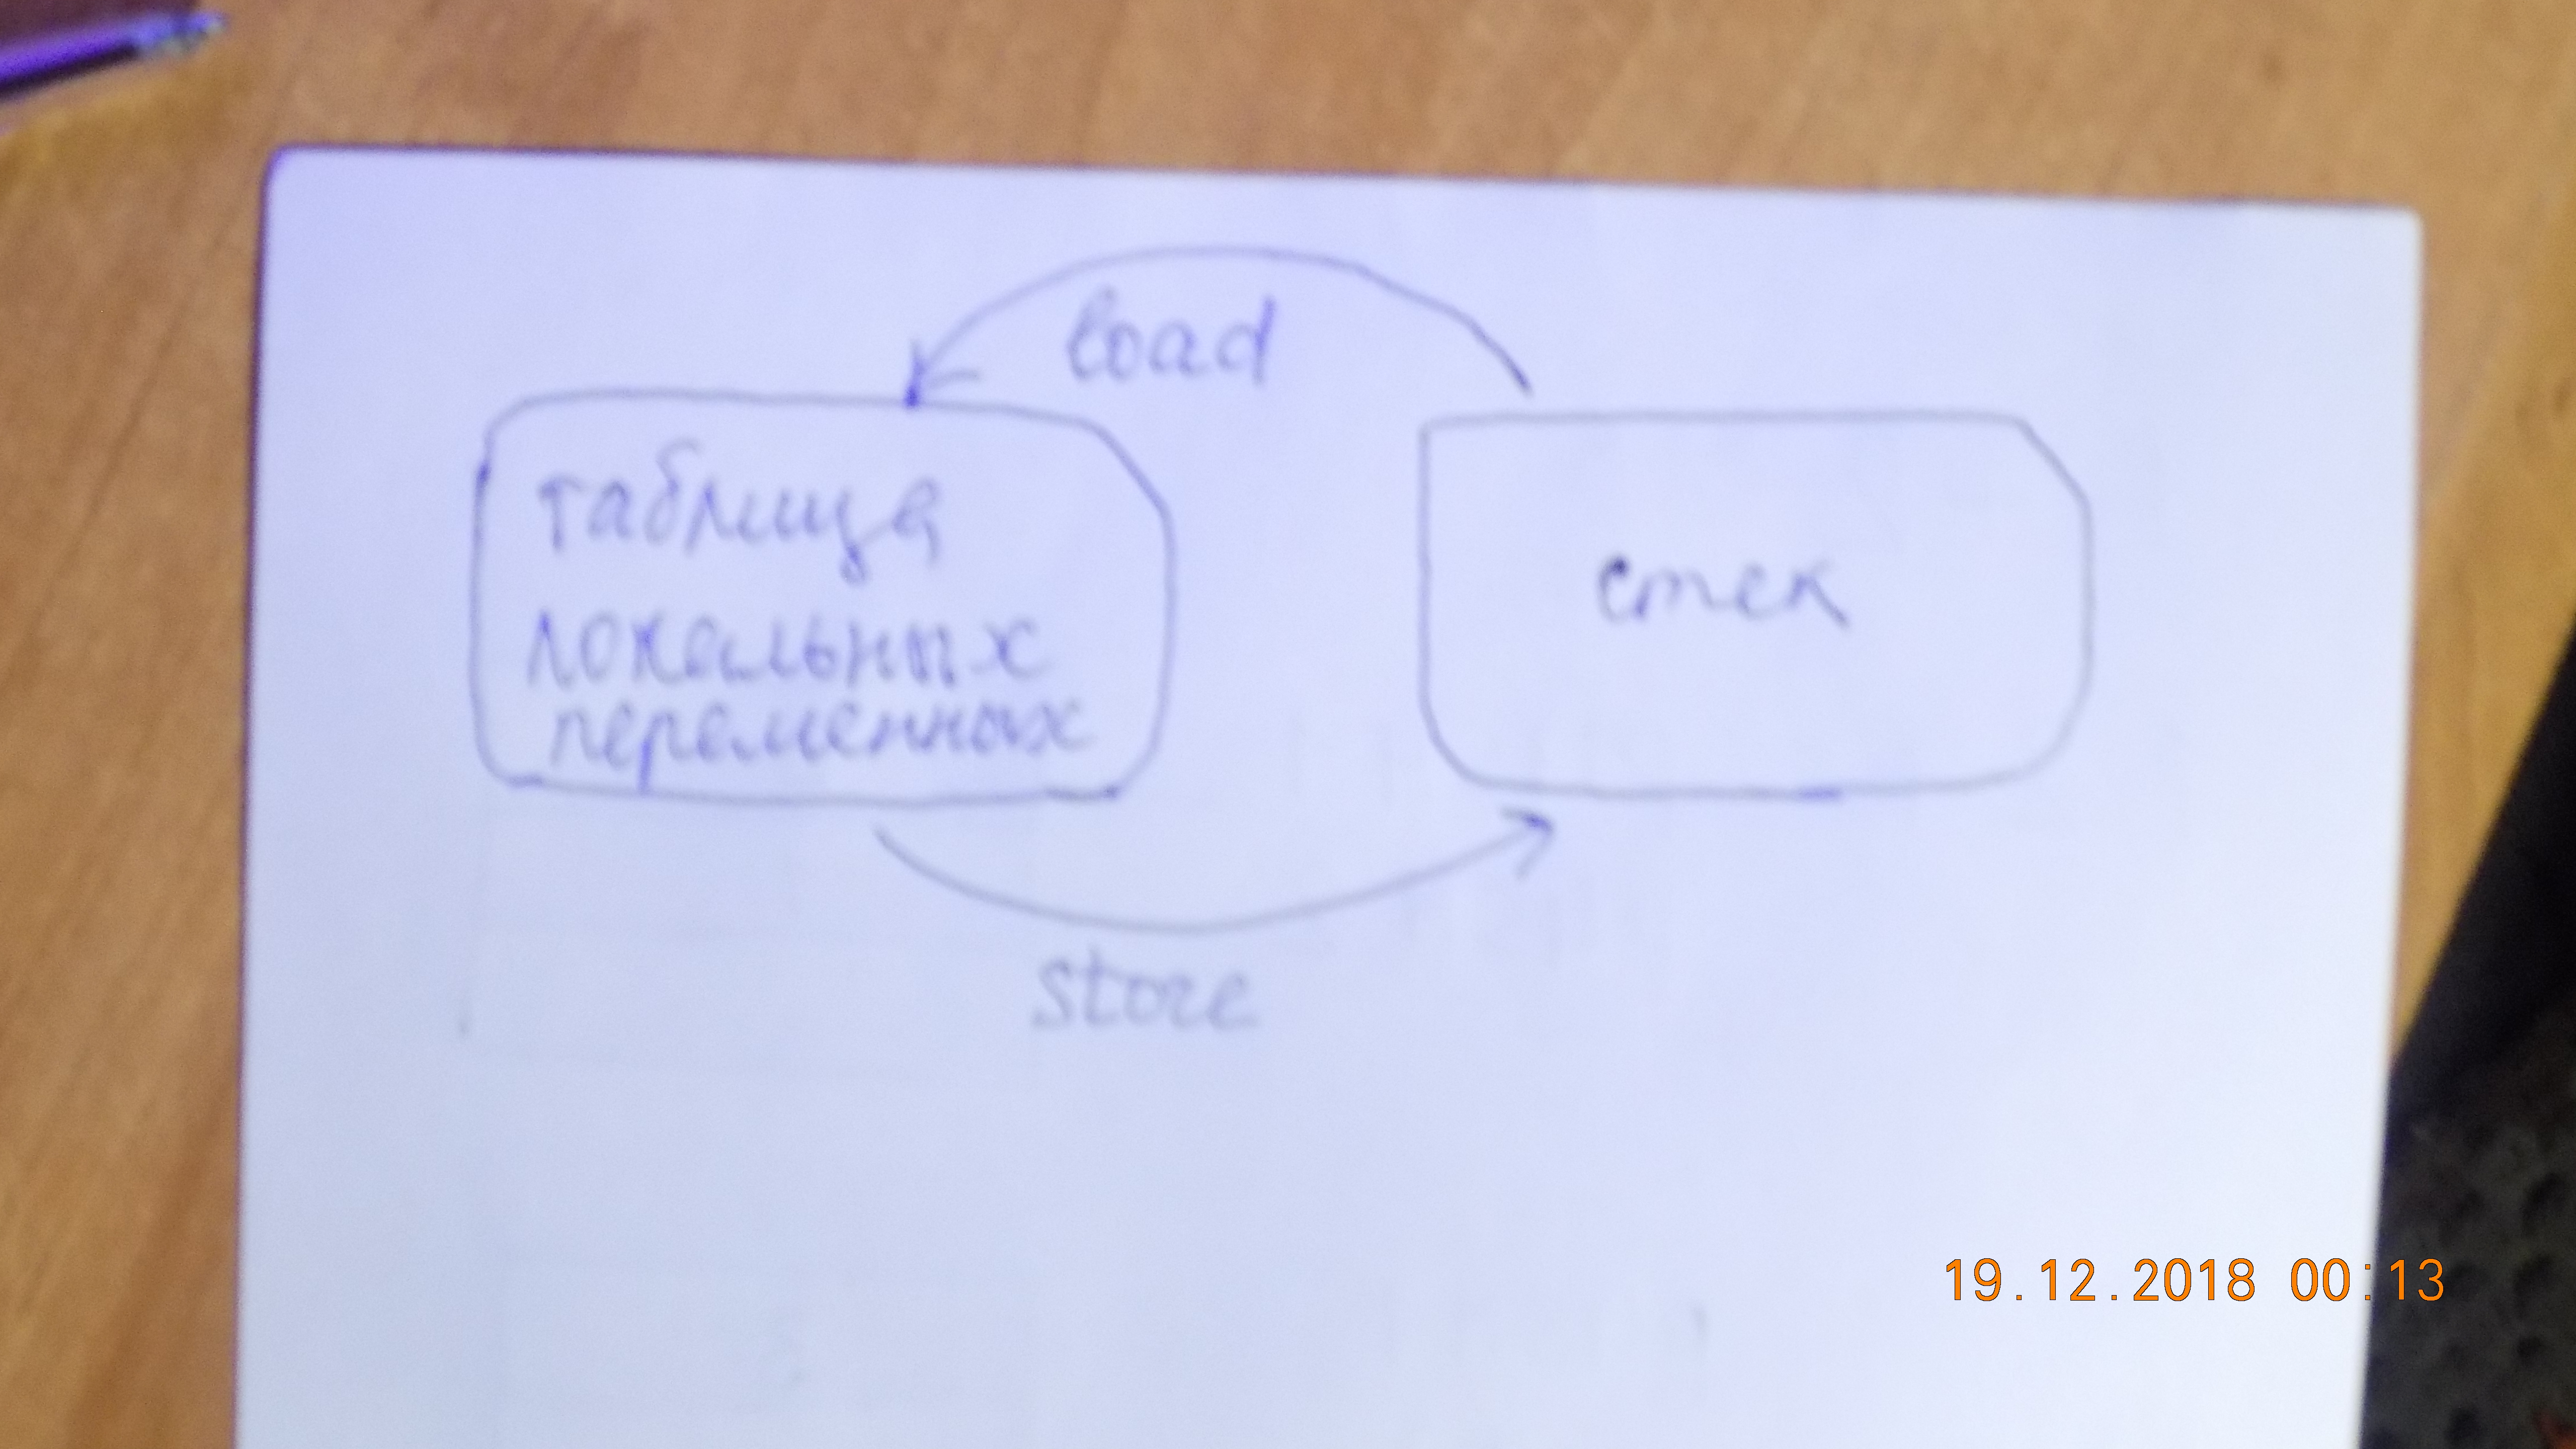 load
таблица
локальных
переменных
стек
store
19.12.2018 00:13